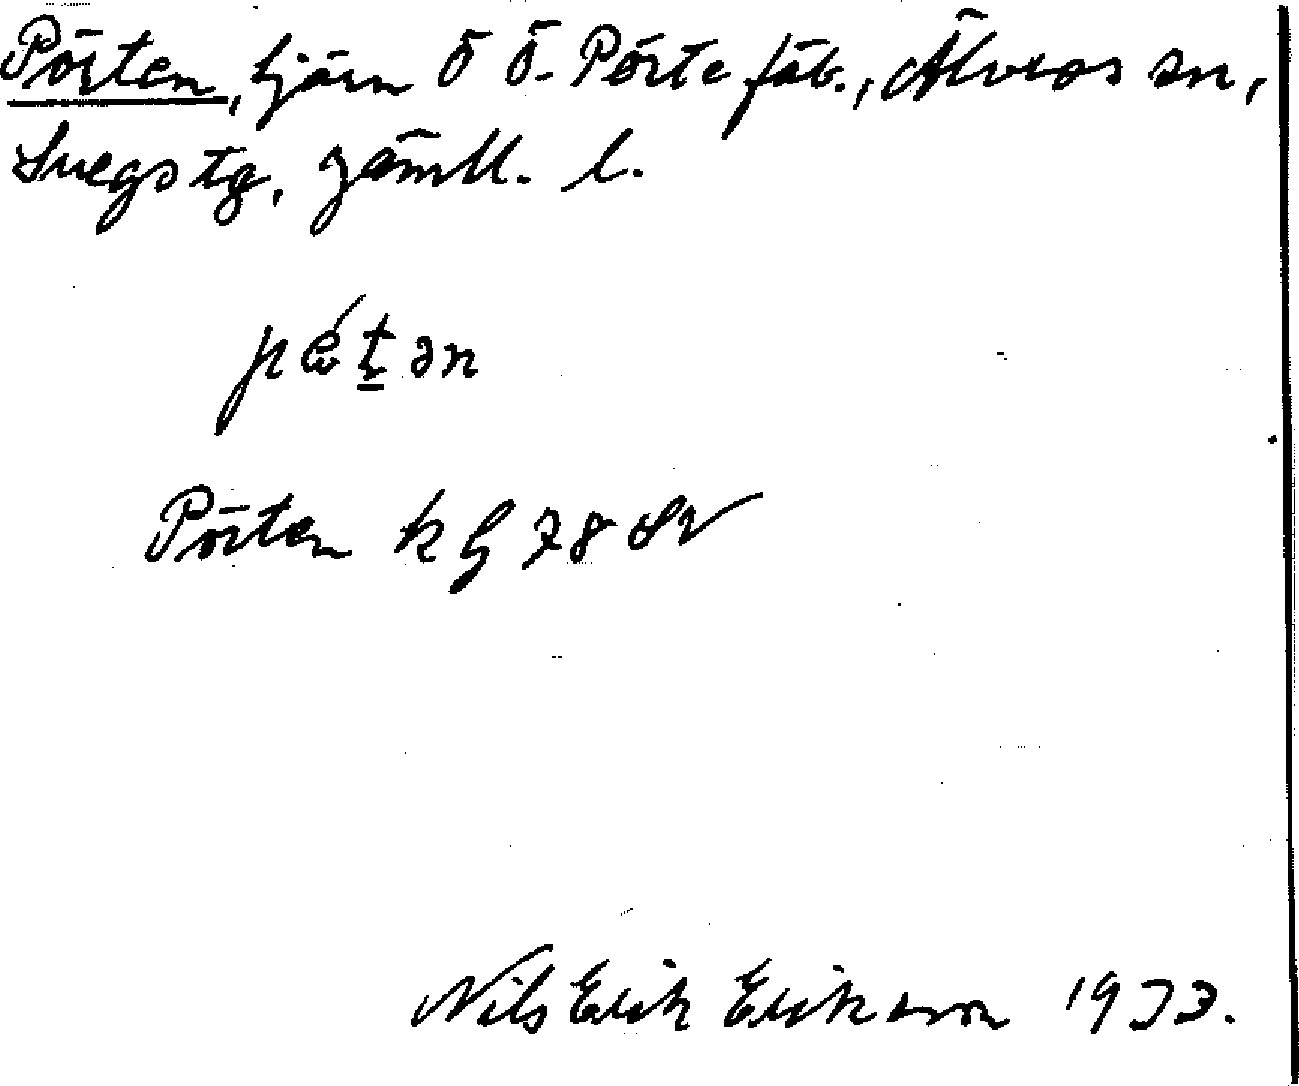 Pörten, tjärn Ö Ö. Pörte fäb., Älvros sn,
Svegs tg, Jämtl. l.
Pörten kg 78 SV
Nils Erik Eriksson 1933.